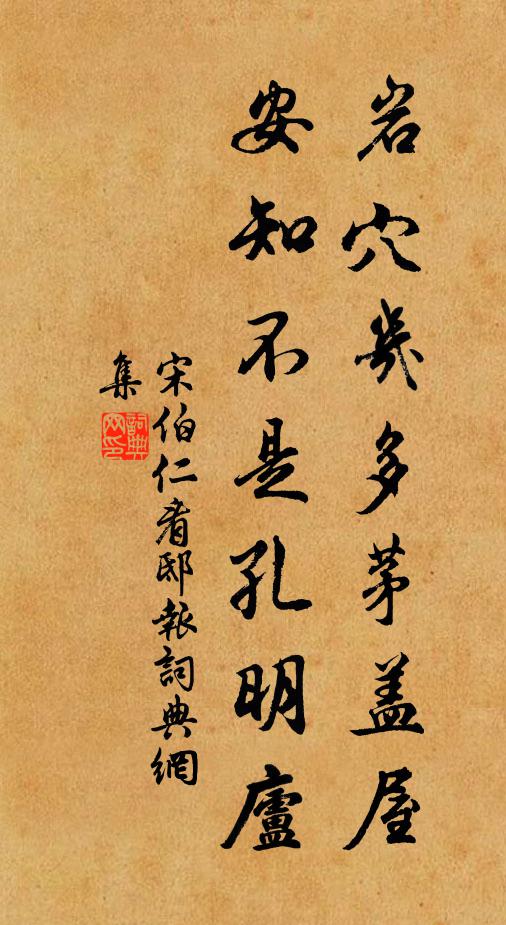 岩穴幾多茅盖屋
安知不是孔明廬
宋伯仁看邸報詞典網
集
詞典网印